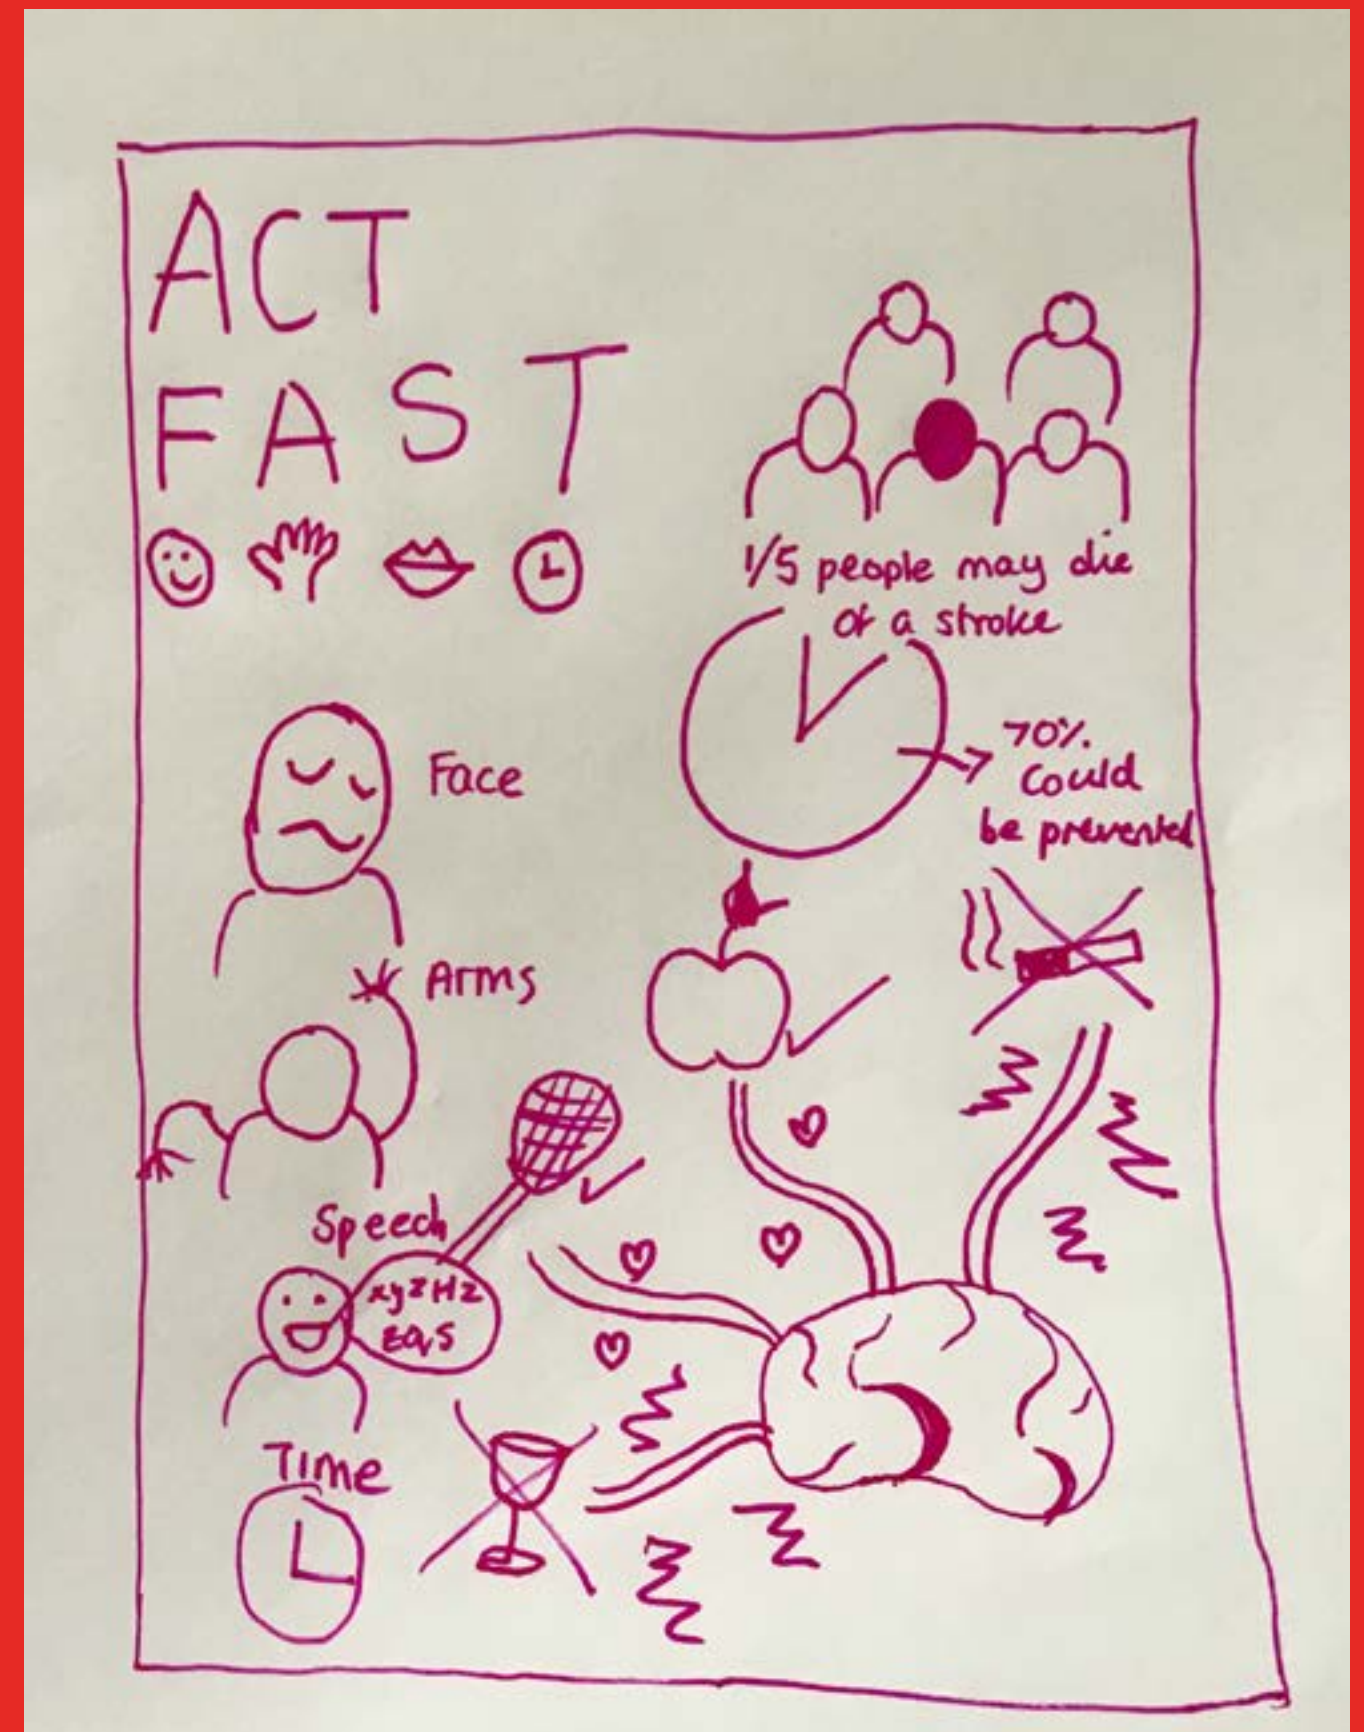 ACT
FAST
1/5 people may die
of a stroke
70%
Could
be prevented
Face
Arms
Speech
xyzHz
EQS
Time